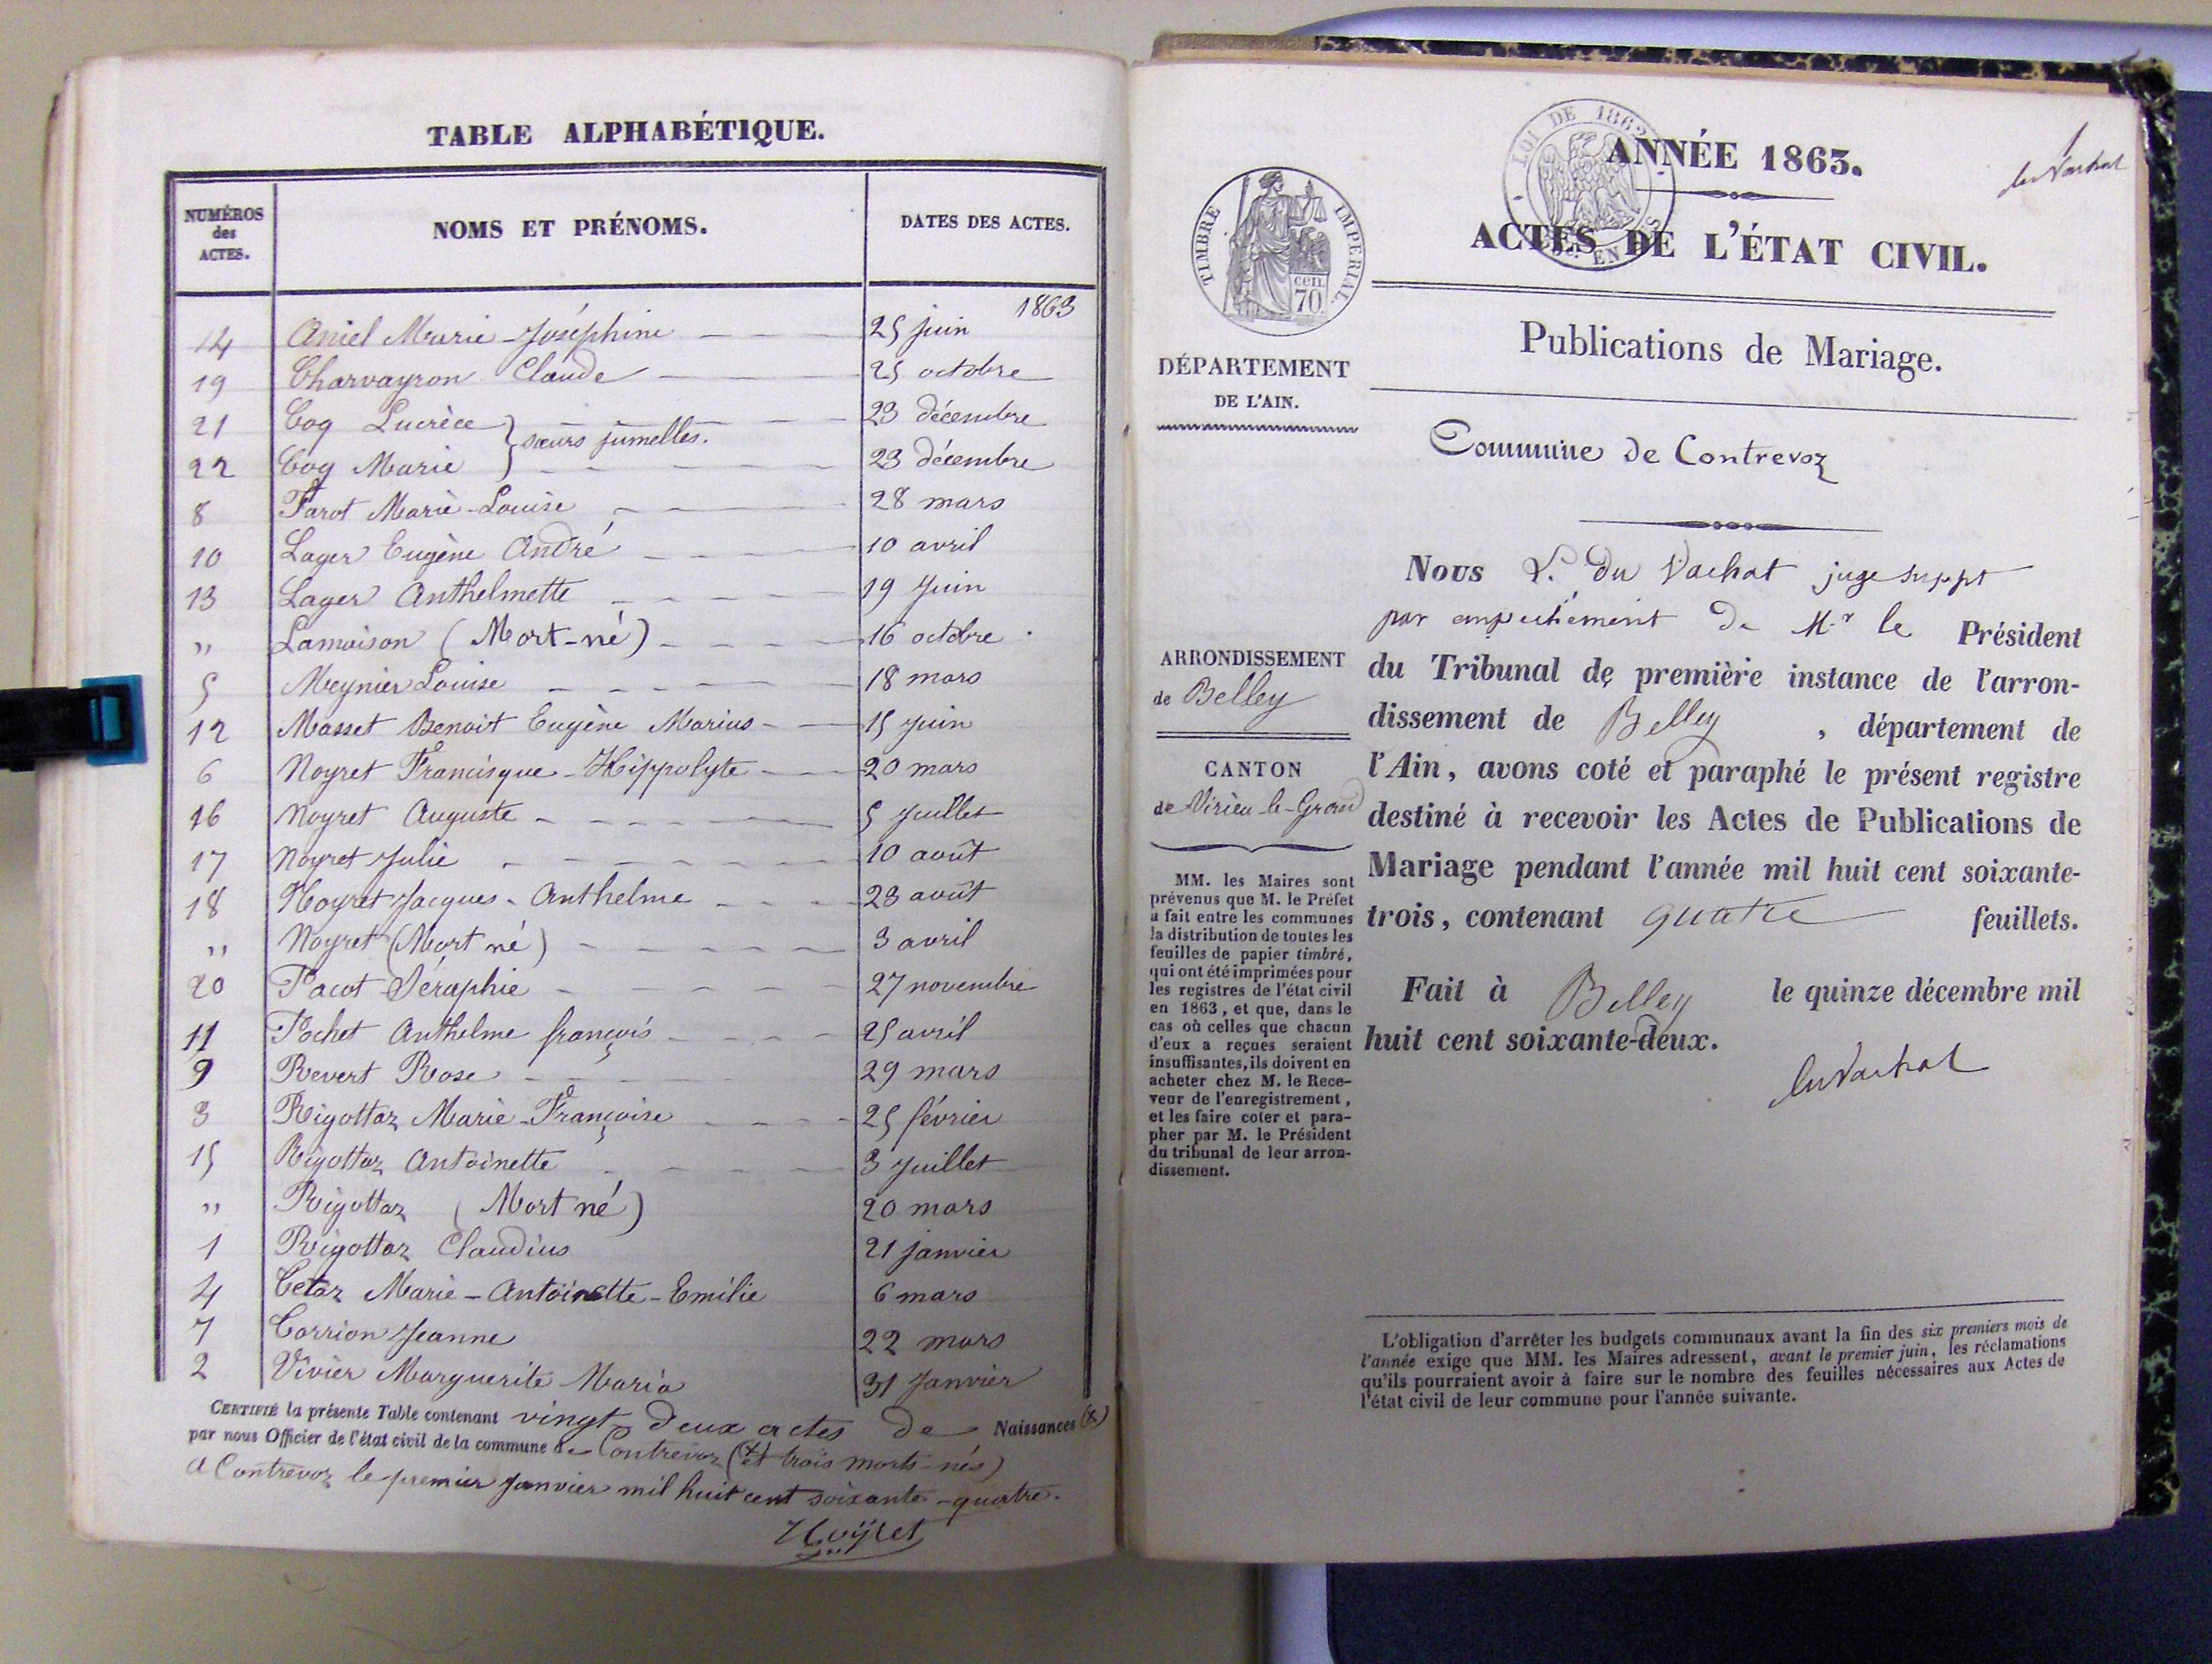 TABLE ALPHABÉTIQUE.
NUMÉROS des ACTES. NOMS ET PRÉNOMS. DATES DES ACTES.
1863
14 Aniel Marie-Joséphine 25 juin
19 Charvayron Claude 25 octobre
21 Coq Lucrèce 23 décembre
sœurs jumelles.
22 Coq Marie 23 décembre
8 Farot Marie-Louise 28 mars
10 Lager Eugène André 10 avril
13 Lager Anthelmette 19 Juin
" Lamaison (Mort-né) 16 octobre
5 Meynier Louise 18 mars
12 Masset Benoit Eugène Marius 15 Juin
6 Noyret Francisque-Hippolyte 20 mars
16 Noyret Auguste 5 Juillet
17 Noyret Julie 10 août
18 Noyret Jacques-Anthelme 23 août
" Noyret (Mort né) 3 avril
20 Pacot Séraphie 27 novembre
11 Pochet Anthelme françois 25 avril
9 Revert Rose 29 mars
3 Rigottaz Marie-Françoise 25 février
15 Rigottaz Antoinette 3 Juillet
" Rigottaz (Mort né) 20 mars
1 Rigottaz Claudius 21 janvier
4 Cetaz Marie-Antoinette-Emilie 6 mars
7 Corrion Jeanne 22 mars
2 Vivier Marguerite Maria 31 Janvier
CERTIFIÉ la présente Table contenant vingt-deux actes de Naissances (x)
par nous Officier de l'état civil de la commune de Contrevoz (x) (et trois morts-nés)
A Contrevoz le premier Janvier mil huit cent soixante-quatre.
Noyret
LOI DE 1862
ANNÉE 1863.
du Vachat
ACTES DE L'ÉTAT CIVIL.
TIMBRE IMPERIAL.
cen. 70
Publications de Mariage.
DÉPARTEMENT
DE L'AIN.
Commune de Contrevoz
Nous L. du Vachat juge suppt
par empechement de Mr le Président
du Tribunal de première instance de l'arron-
dissement de Belley, département de
l'Ain, avons coté et paraphé le présent registre
destiné à recevoir les Actes de Publications de
Mariage pendant l'année mil huit cent soixante-
trois, contenant quatre feuillets.
Fait à Belley le quinze décembre mil
huit cent soixante-deux.
du Vachat
ARRONDISSEMENT
de Belley
CANTON
de Virieu-le-Grand
MM. les Maires sont
prévenus que M. le Préfet
a fait entre les communes
la distribution de toutes les
feuilles de papier timbré,
qui ont été imprimées pour
les registres de l'état civil
en 1863, et que, dans le
cas où celles que chacun
d'eux a reçues seraient
insuffisantes, ils doivent en
acheter chez M. le Rece-
veur de l'enregistrement,
et les faire coter et para-
pher par M. le Président
du tribunal de leur arron-
dissement.
L'obligation d'arrêter les budgets communaux avant la fin des six premiers mois de
l'année exige que MM. les Maires adressent, avant le premier juin, les réclamations
qu'ils pourraient avoir à faire sur le nombre des feuilles nécessaires aux Actes de
l'état civil de leur commune pour l'année suivante.